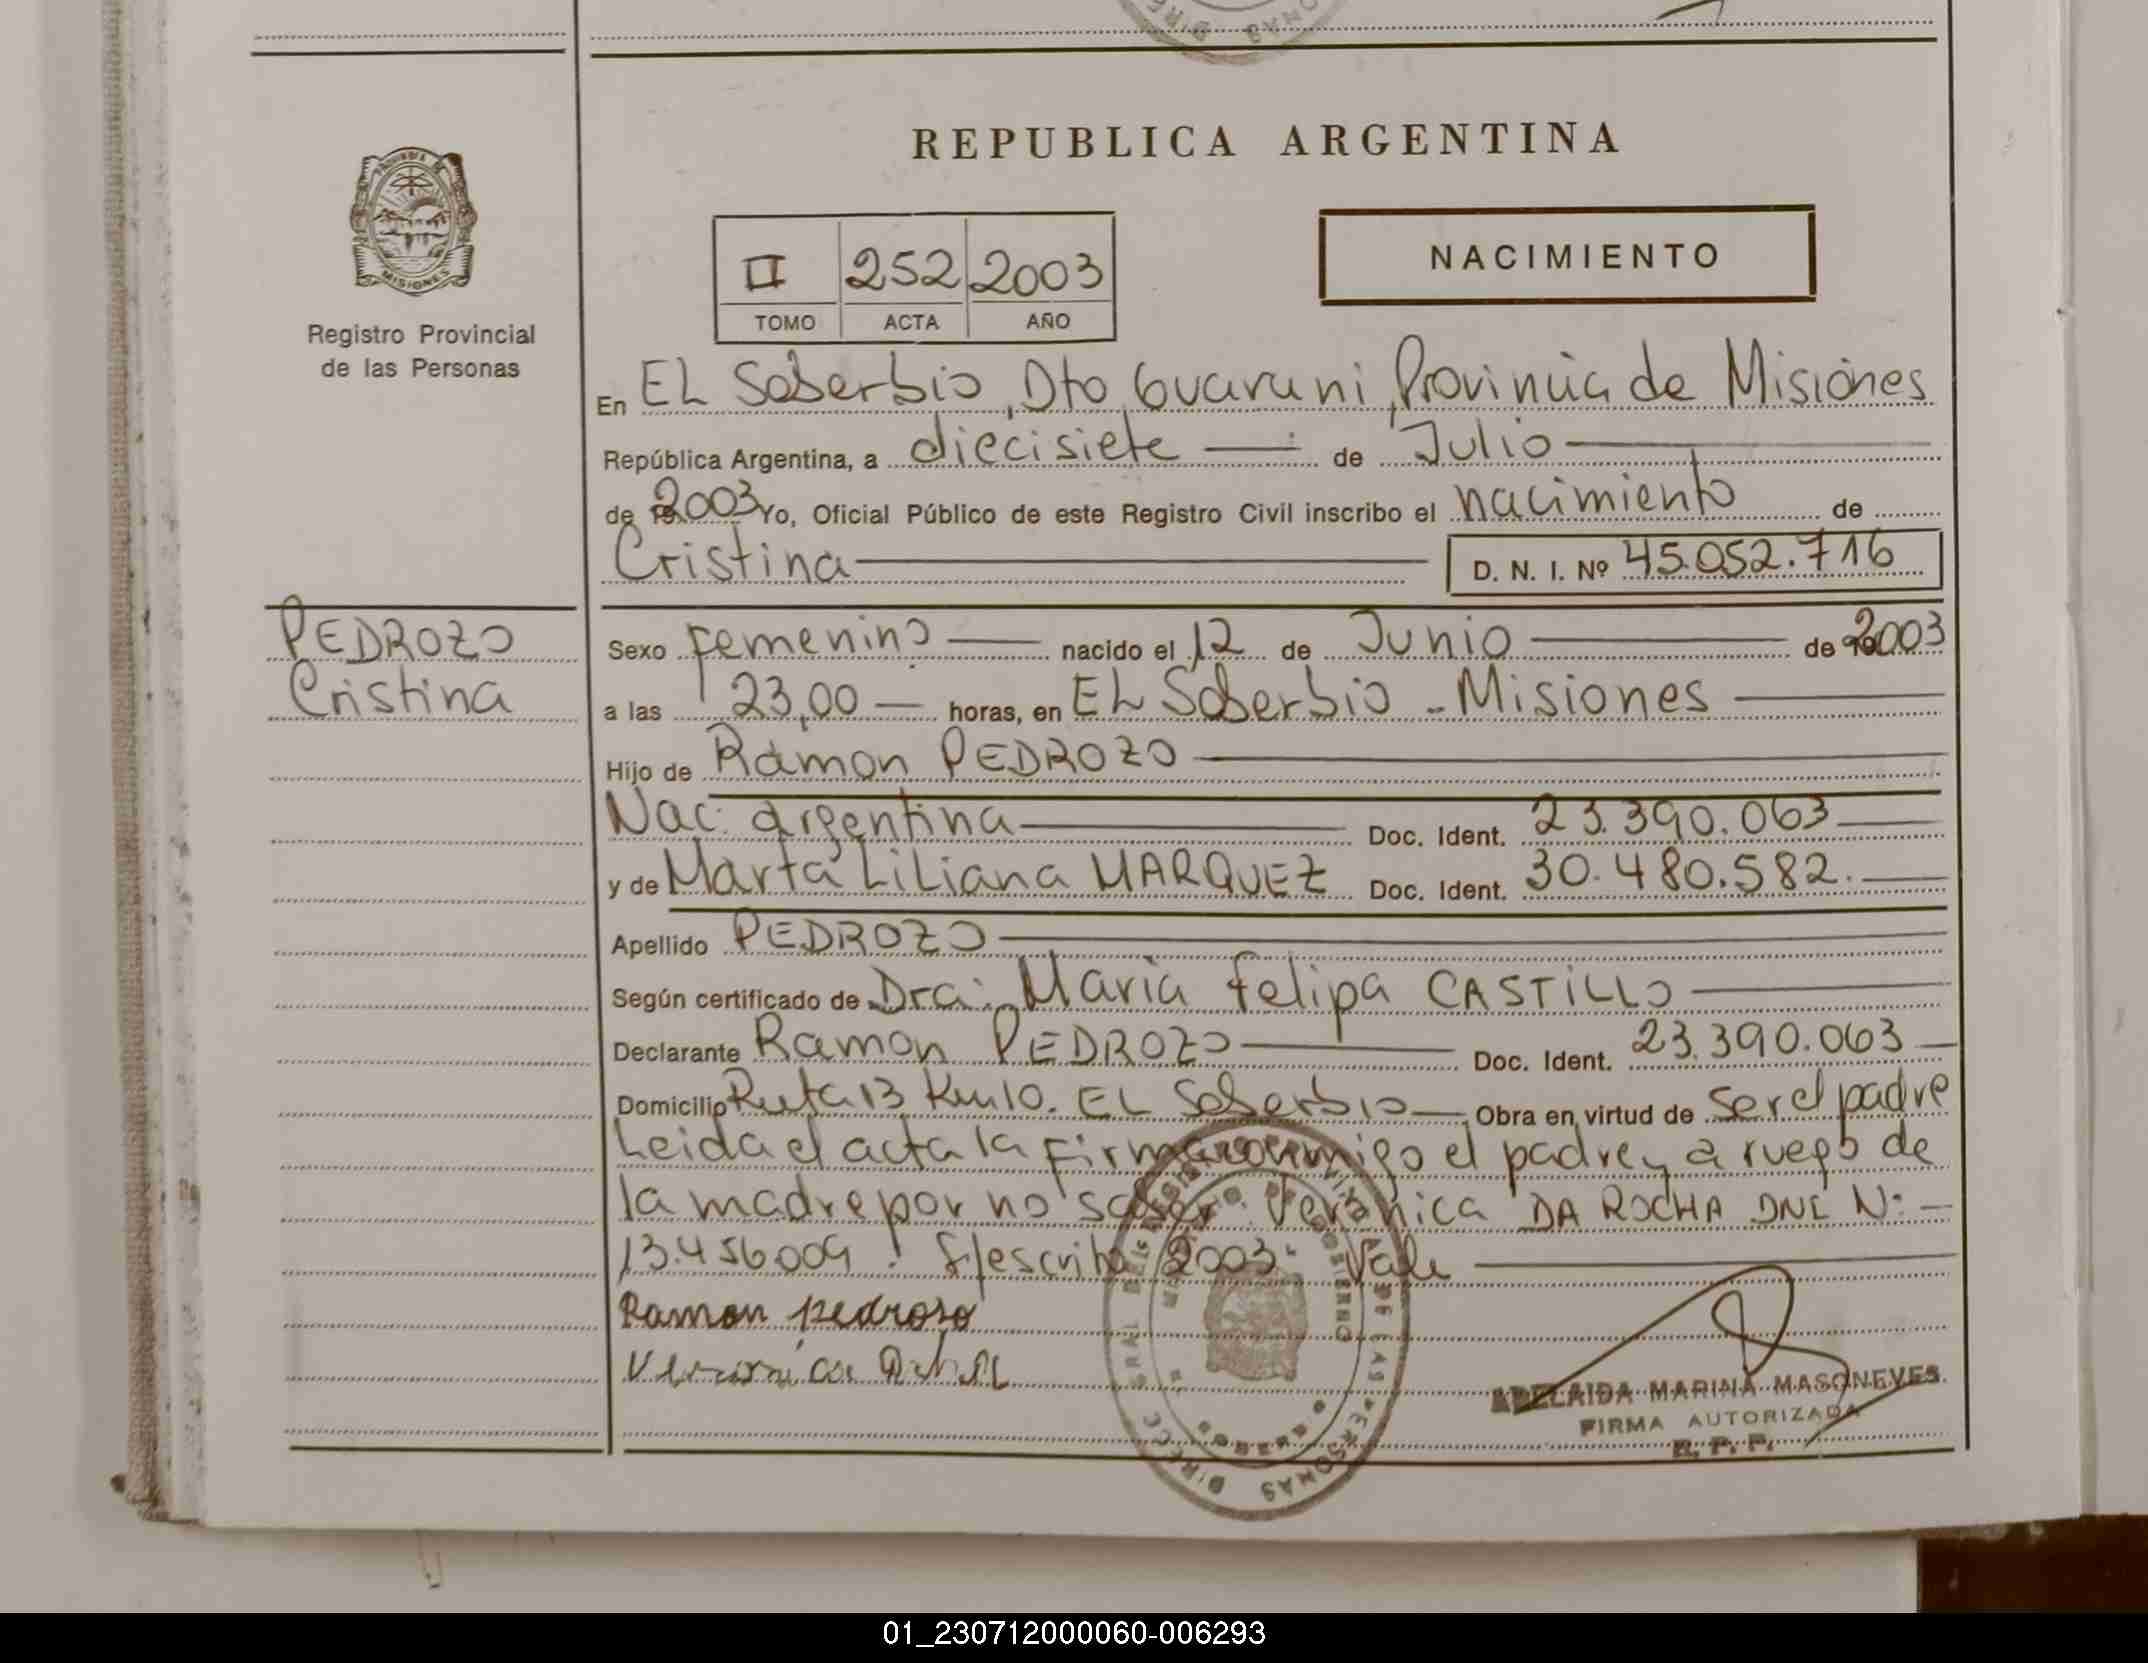 REPUBLICA ARGENTINA
PROVINCIA DE
MISIONES
Registro Provincial
de las Personas
II 252 2003
TOMO ACTA AÑO
NACIMIENTO
En EL Soberbio, Dto Guarani, Provincia de Misiones
República Argentina, a diecisiete de Julio
de 2003 Yo, Oficial Público de este Registro Civil inscribo el nacimiento de
Cristina D. N. I. Nº 45.052.716
PEDROZO
Cristina
Sexo femenino nacido el 12 de Junio de 2003
a las 23,00 horas, en EL Soberbio - Misiones
Hijo de Ramon PEDROZO
Nac. argentina Doc. Ident. 23.390.063
y de Marta Liliana MARQUEZ Doc. Ident. 30.480.582.
Apellido PEDROZO
Según certificado de Dra. Maria Felipa CASTILLO
Declarante Ramon PEDROZO Doc. Ident. 23.390.063
Domicilio Ruta 13 Km 10. EL Soberbio Obra en virtud de ser el padre
Leida el acta la firma conmigo el padre y a ruego de
la madre por no saber: Veronica DA ROCHA DNI N:
13.456009. S/escrito 2003. Vale
Ramon pedroso
Veronica
ADELAIDA MARINA MASONEVES
FIRMA AUTORIZADA
R. P. P.
01_230712000060-006293